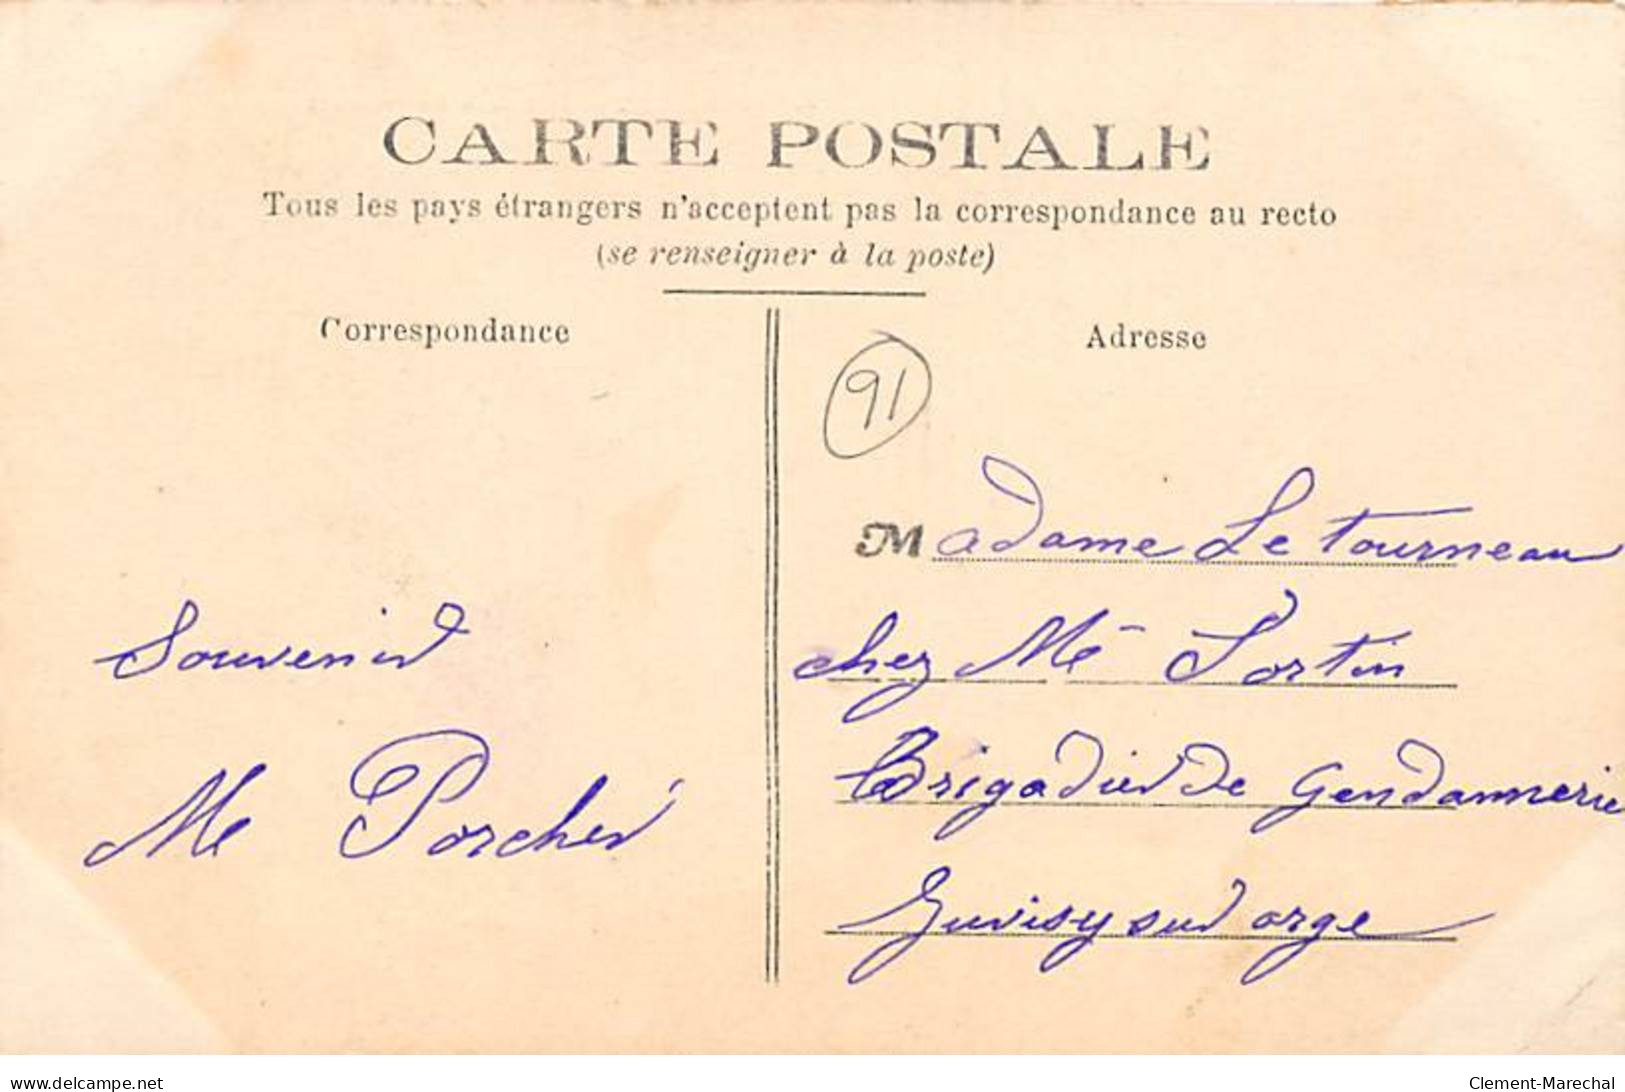 CARTE POSTALE
Tous les pays étrangers n'acceptent pas la correspondance au recto
(se renseigner à la poste)
Correspondance
Adresse
91
Madame Le Tourneau
chez Mr Fortin
Brigadier de Gendarmerie
Juvisy sur orge
Souvenir
Me Porcher
www.delcampe.net
Clement-Marechal